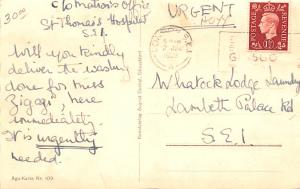 30.00
C/o Matron's Office
St Thomas's Hospital
S.E.1.
Will you kindly
deliver the washing
done for Miss
here
immediately.
It is urgently
needed.
URGENT
POSTAGE REVENUE
1½D
Whatock Lodge Laundry
Lambeth Palace Rd
S.E.1
Agu-Karte Nr. 109